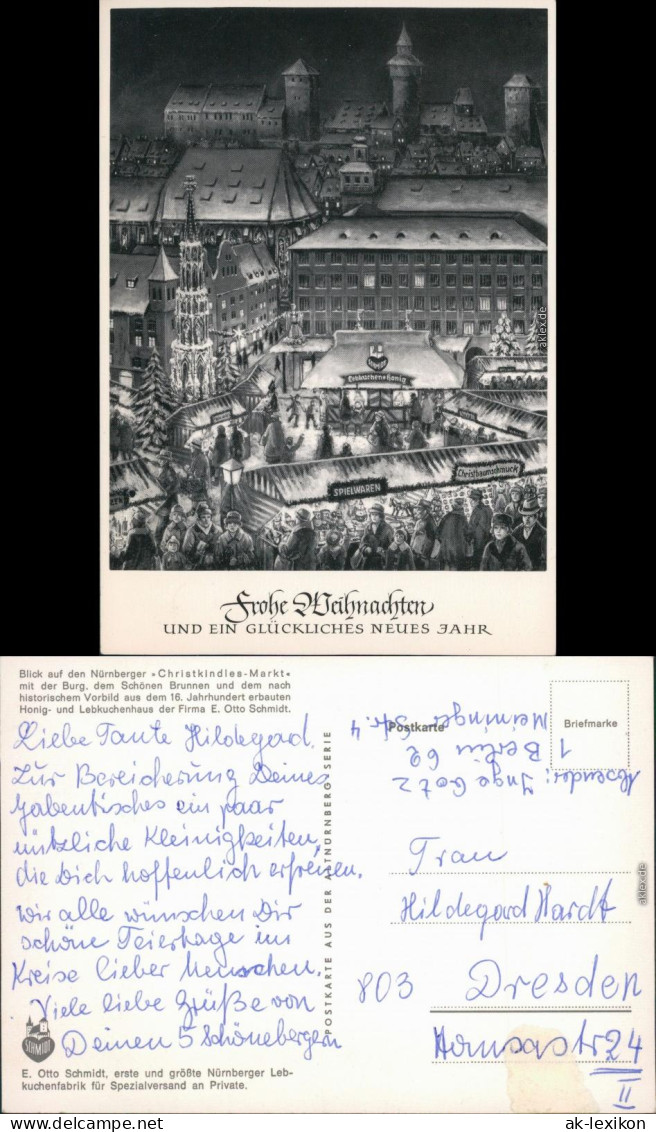 Lebkuchen & Honig
SPIELWAREN
Christbaumschmuck
aklex.de
Frohe Weihnachten
UND EIN GLÜCKLICHES NEUES JAHR
Blick auf den Nürnberger »Christkindles-Markt«
mit der Burg, dem Schönen Brunnen und dem nach
historischem Vorbild aus dem 16. Jahrhundert erbauten
Honig- und Lebkuchenhaus der Firma E. Otto Schmidt.
Liebe Tante Hildegard.
Zur Bereicherung Deines
Gabentisches ein paar
nützliche Kleinigkeiten,
die Dich hoffentlich erfreuen.
Wir alle wünschen Dir
schöne Feiertage im
Kreise lieber Menschen.
Viele liebe Grüße von
Deinen 5 Schönebergern
SCHMIDT
E. Otto Schmidt, erste und größte Nürnberger Leb-
kuchenfabrik für Spezialversand an Private.
POSTKARTE AUS DER ALTNÜRNBERG-SERIE
Postkarte
Briefmarke
Absender: Inge Gotz
1 Berlin 62
Meininger Str. 4
Frau
Hildegard Hardt
803 Dresden
Hansastr 24
II
aklex.de
ak-lexikon